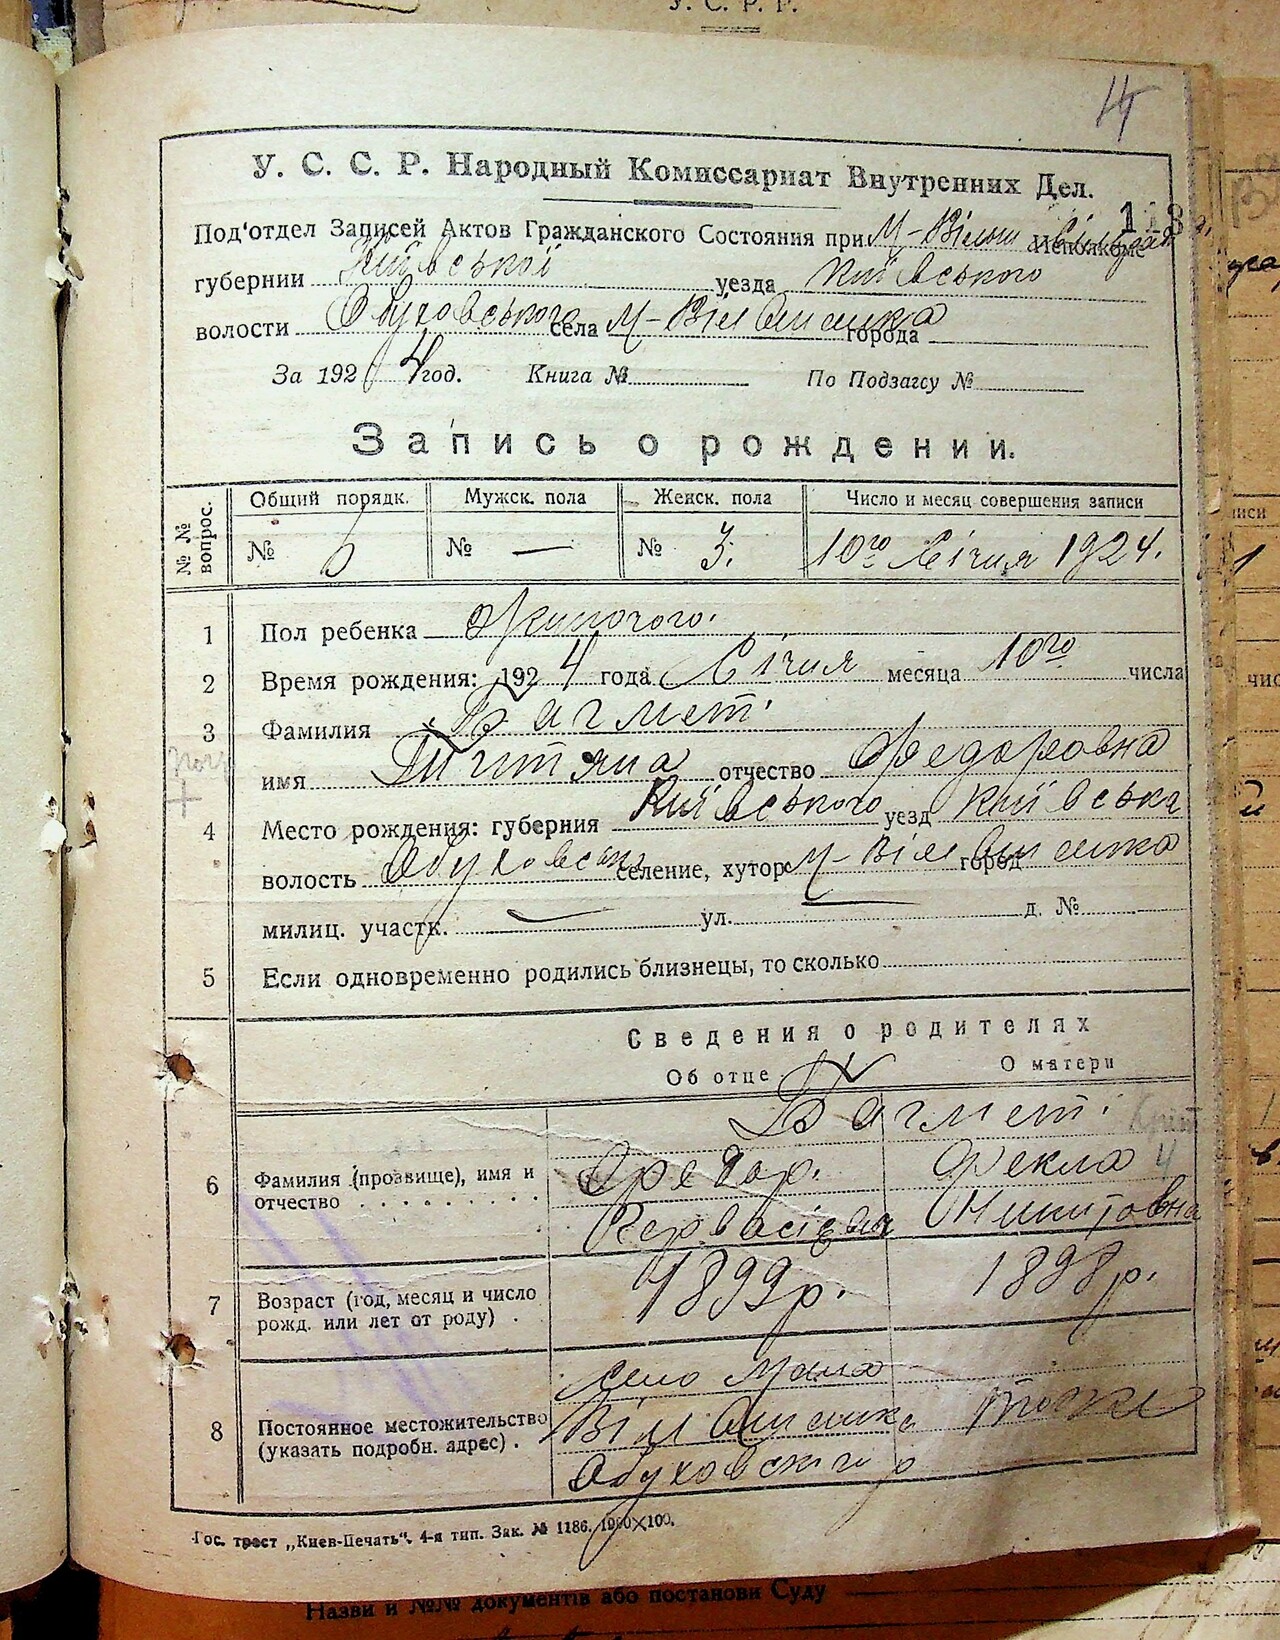 У. С. Р. Р.
4
У. С. С. Р. Народный Комиссариат Внутренних Дел.
Под'отдел Записей Актов Гражданского Состояния при М-Вільш Исполкоме
113
губернии Київської уезда Київського
волости Обуховського села М-Вільшанка города
За 1924 год. Книга № По Подзагсу №
Запись о рождении.
№№ вопрос. Общий порядк. Мужск. пола Женск. пола Число и месяц совершения записи
№ 6 № — № 3. 10го Січня 1924.
1 Пол ребенка Жиночого.
2 Время рождения: 1924 года Січня месяца 10го числа
3 Фамилия Багмет
имя Титяна отчество Федоровна
4 Место рождения: губерния Київського уезд Київська
волость Обуховська селение, хутор М-Вільшанка город
милиц. участк. — ул. — д. №
5 Если одновременно родились близнецы, то сколько
Сведения о родителях
Об отце О матери
Багмет
6 Фамилия (прозвище), имя и Федор. Фекла
отчество . . . . . . . . . Никитовна
7 Возраст (год, месяц и число 1899р. 1898р.
рожд. или лет от роду) .
село Мала
8 Постоянное местожительство Вільшанка тоже
(указать подробн. адрес) . Обуховского
Гос. трест „Киев-Печать“. 4-я тип. Зак. № 1186. 1900×100.
Назви и №№ документів або постанови Суду